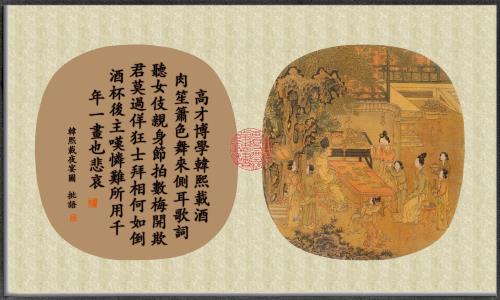 高才博學韓熙載酒
肉笙簫色舞來側耳歌詞
聽女伎親身節拍數梅開欺
君莫過佯狂士拜相何如倒
酒杯後主嘆憐難所用千
年一畫也悲哀
韓熙載夜宴圖 批語